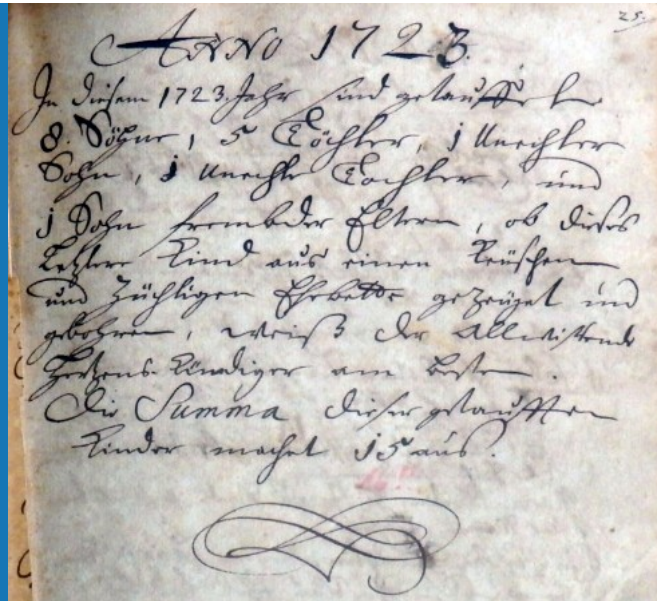 25.
ANNO 1723.
In diesem 1723. Jahr sind getauffet
8. Söhne, 5 Töchter, 1 Unechter
Sohn, 1 Unechte Tochter, und
1 Sohn frembder Eltern, ob dieses
Letztere Kind aus einen Keüschen
und Züchtigen Ehebette gezeüget und
gebohren, weiß der Allwissende
Hertzens-Kündiger am beste.
Die Summa dieser getaufften
Kinder machet 15 aus.